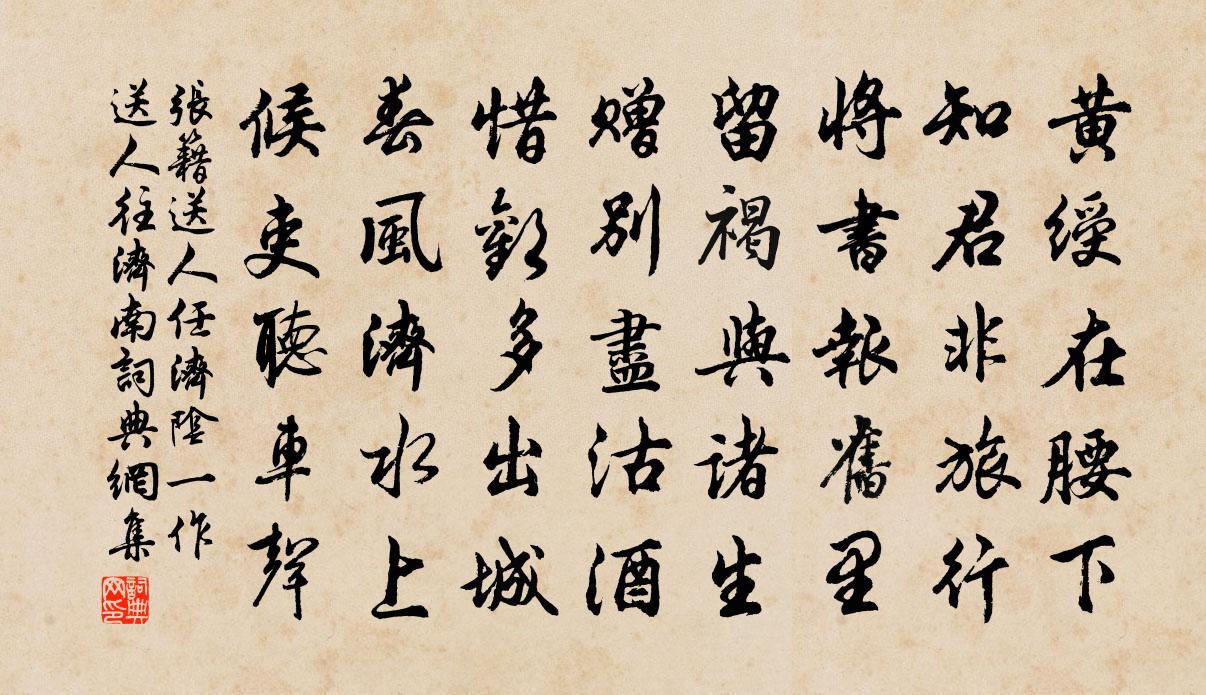 黃綬在腰下
知君非旅行
將書報舊里
留褐與諸生
贈別盡沽酒
惜歡多出城
春風濟水上
候吏聽車聲
張籍送人任濟陰一作
送人往濟南詞典網集
詞典網印